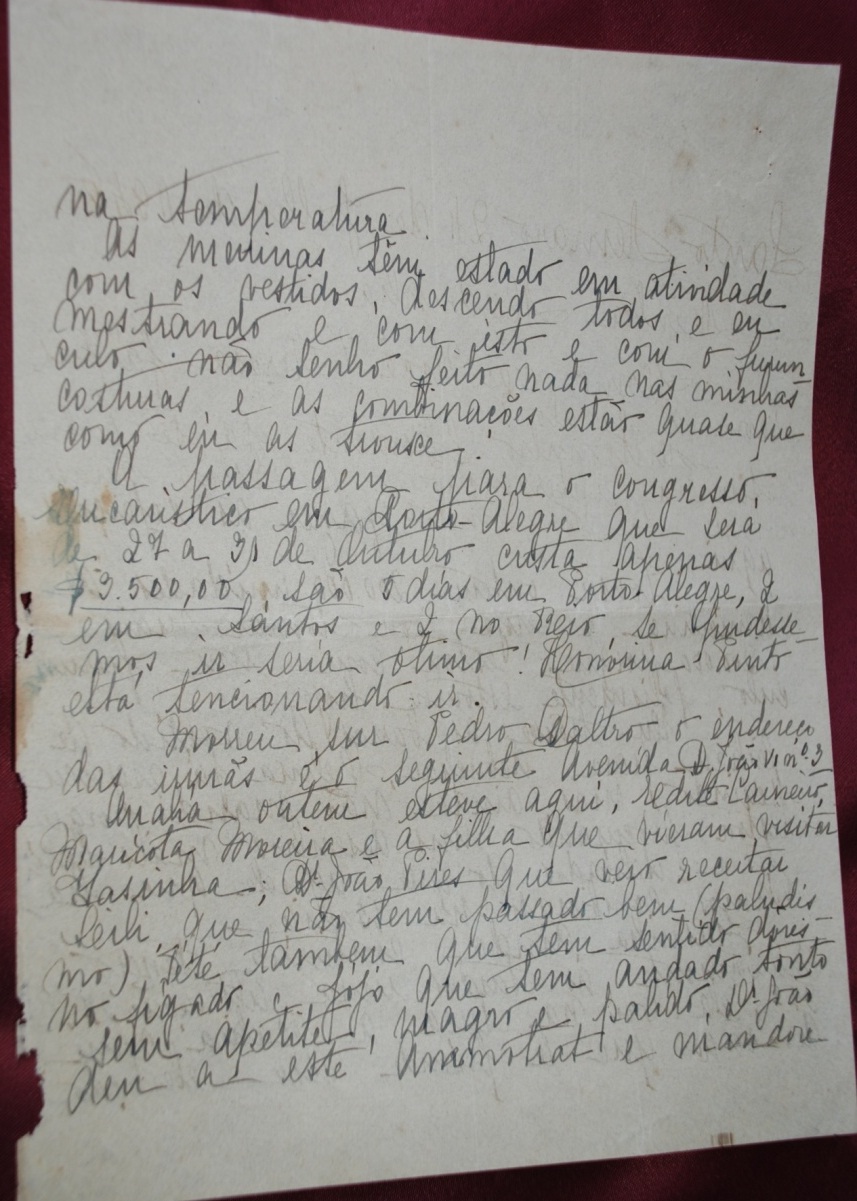 na temperatura.
As meninas têm estado em atividade
com os vestidos, descendo todos, e eu
mestrando e com isto e com o furun-
culo não tenho feito nada nas minhas
costuras, e as combinações estão quase que
como eu as trouxe.
A passagem para o congresso,
Eucaristico em Porto-Alegre que será
de 27 a 31 de Outubro custa apenas
$ 3.500,00, são 5 dias em Porto-Alegre, 2
em Santos e 2 no Rio, se pudesse-
mos ir seria otimo! Honorina Pinto
está tencionando ir.
Morreu sur Pedro Daltro o endereço
das irmãs é o seguinte Avenida D. João VI nº 3
ontem esteve aqui, Carneiro,
Maricota Moreira e a filha que vieram visitar
Zasinha; Dr. João Pires que veio receitar
que não tem passado bem (paludis-
mo) Teté tambem que tem sentido dores
no figado e Jójó que tem andado tonto
sem apetite, magro e palido, Dr. João
deu a este e mandou